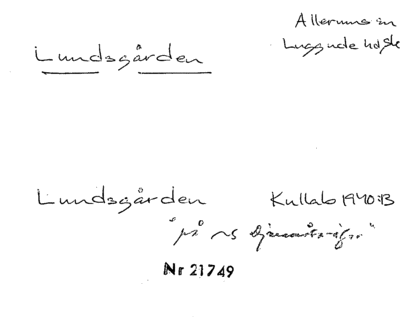 Allerums sn
Luggude hd Sk
Lundsgården
Lundsgården Kullab 1940:13
"på
Nr 21749